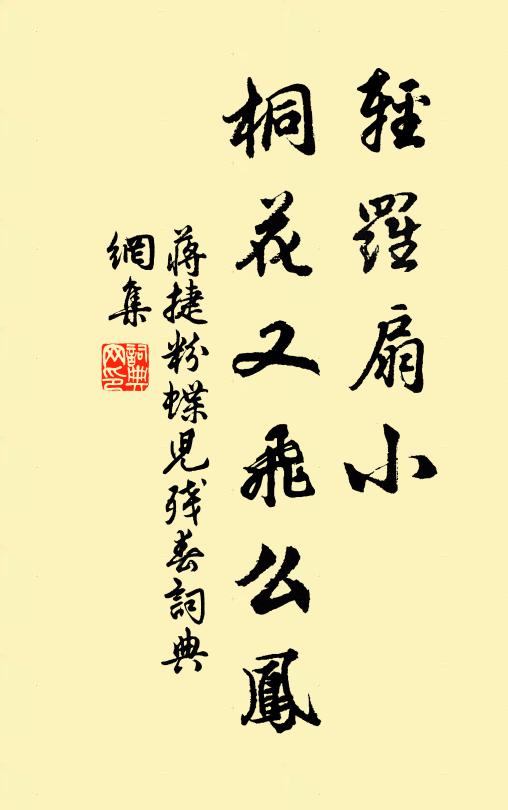 輕羅扇小
桐花又飛么鳳
蔣捷粉蝶児残春詞典
網集
詞典
网印